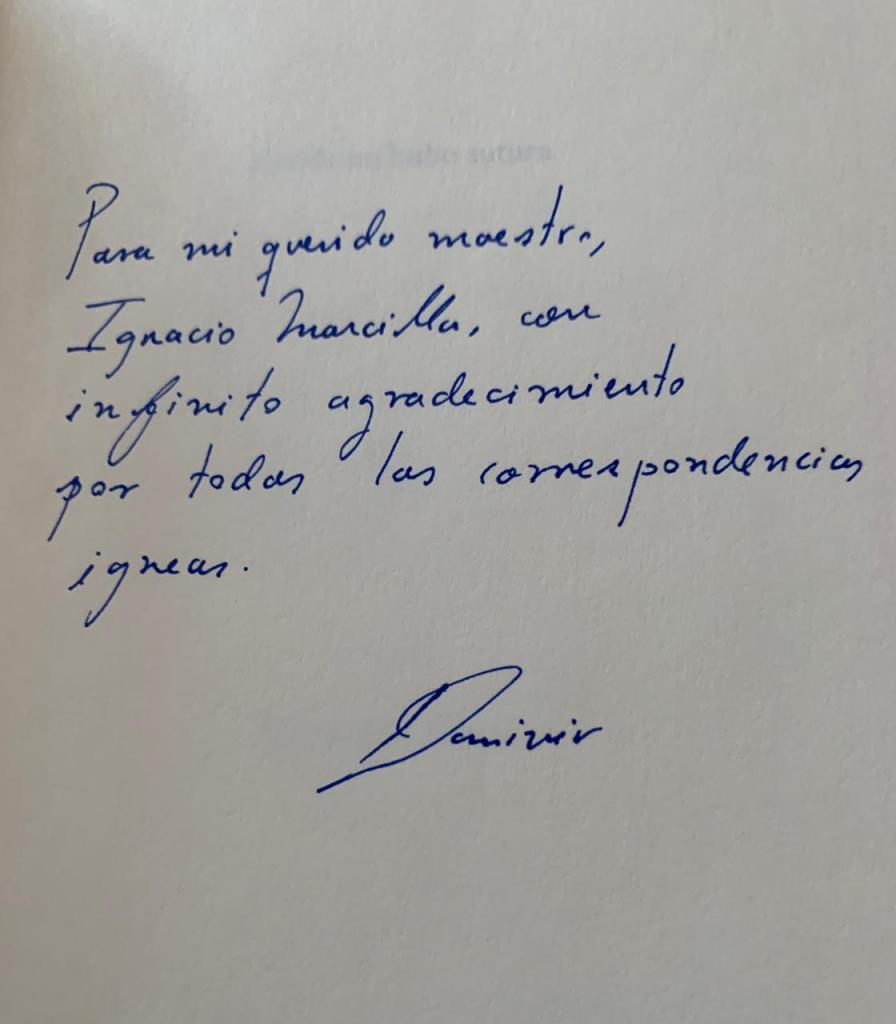 hubo sutura
Para mi querido maestro,
Ignacio Marcilla, con
infinito agradecimiento
por todas las correspondencias
igneas.